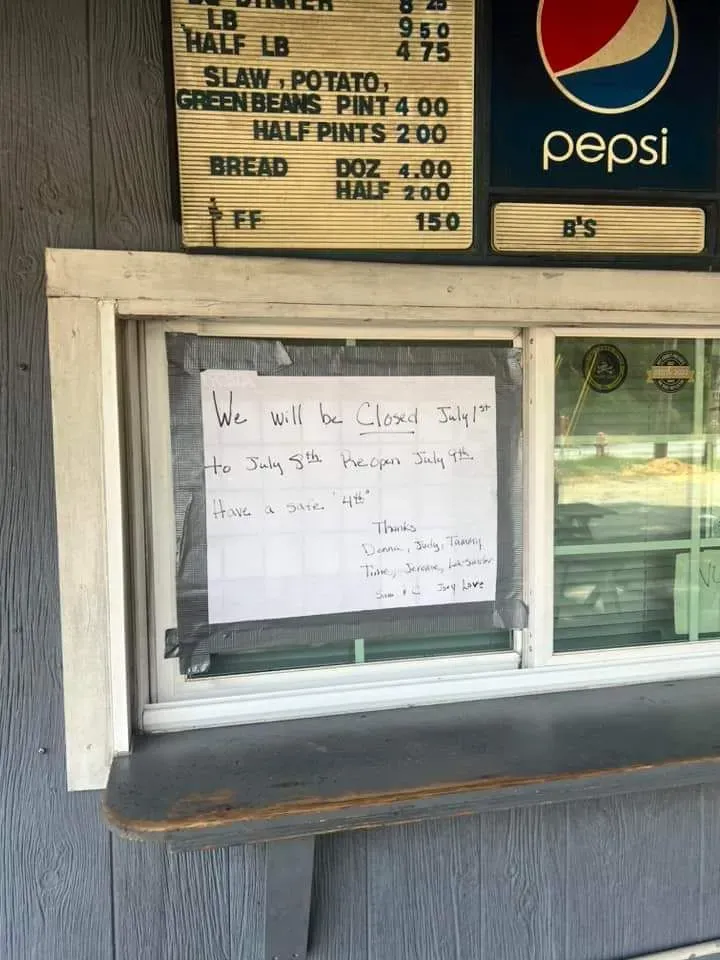 DINNER 8 25
LB 9 50
HALF LB 4 75
SLAW, POTATO,
GREEN BEANS PINT 4 00
HALF PINTS 2 00
BREAD DOZ 4.00
HALF 2 00
FF 1 50
pepsi
B'S
We will be Closed July 1st
to July 8th Reopen July 9th
Have a safe "4th"
Thanks
Donna, Judy, Tammy
Jerome,
Joey Love